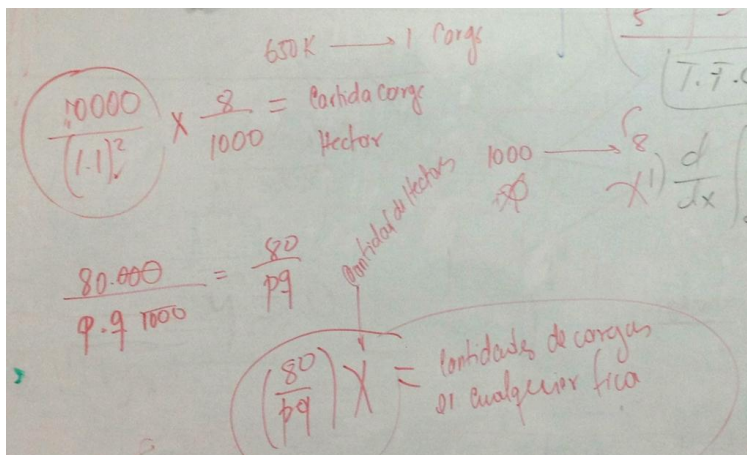 650K → 1 Carga
10000/(1.1)² × 8/1000 = Cantidad carga
Hectar
1000 → 8
X
1) d/dx
5
T.F.C
80.000/(p.q 1000) = 80/pq
Cantidad de Hectars
(80/pq) X = Cantidades de cargas
de cualquier fica